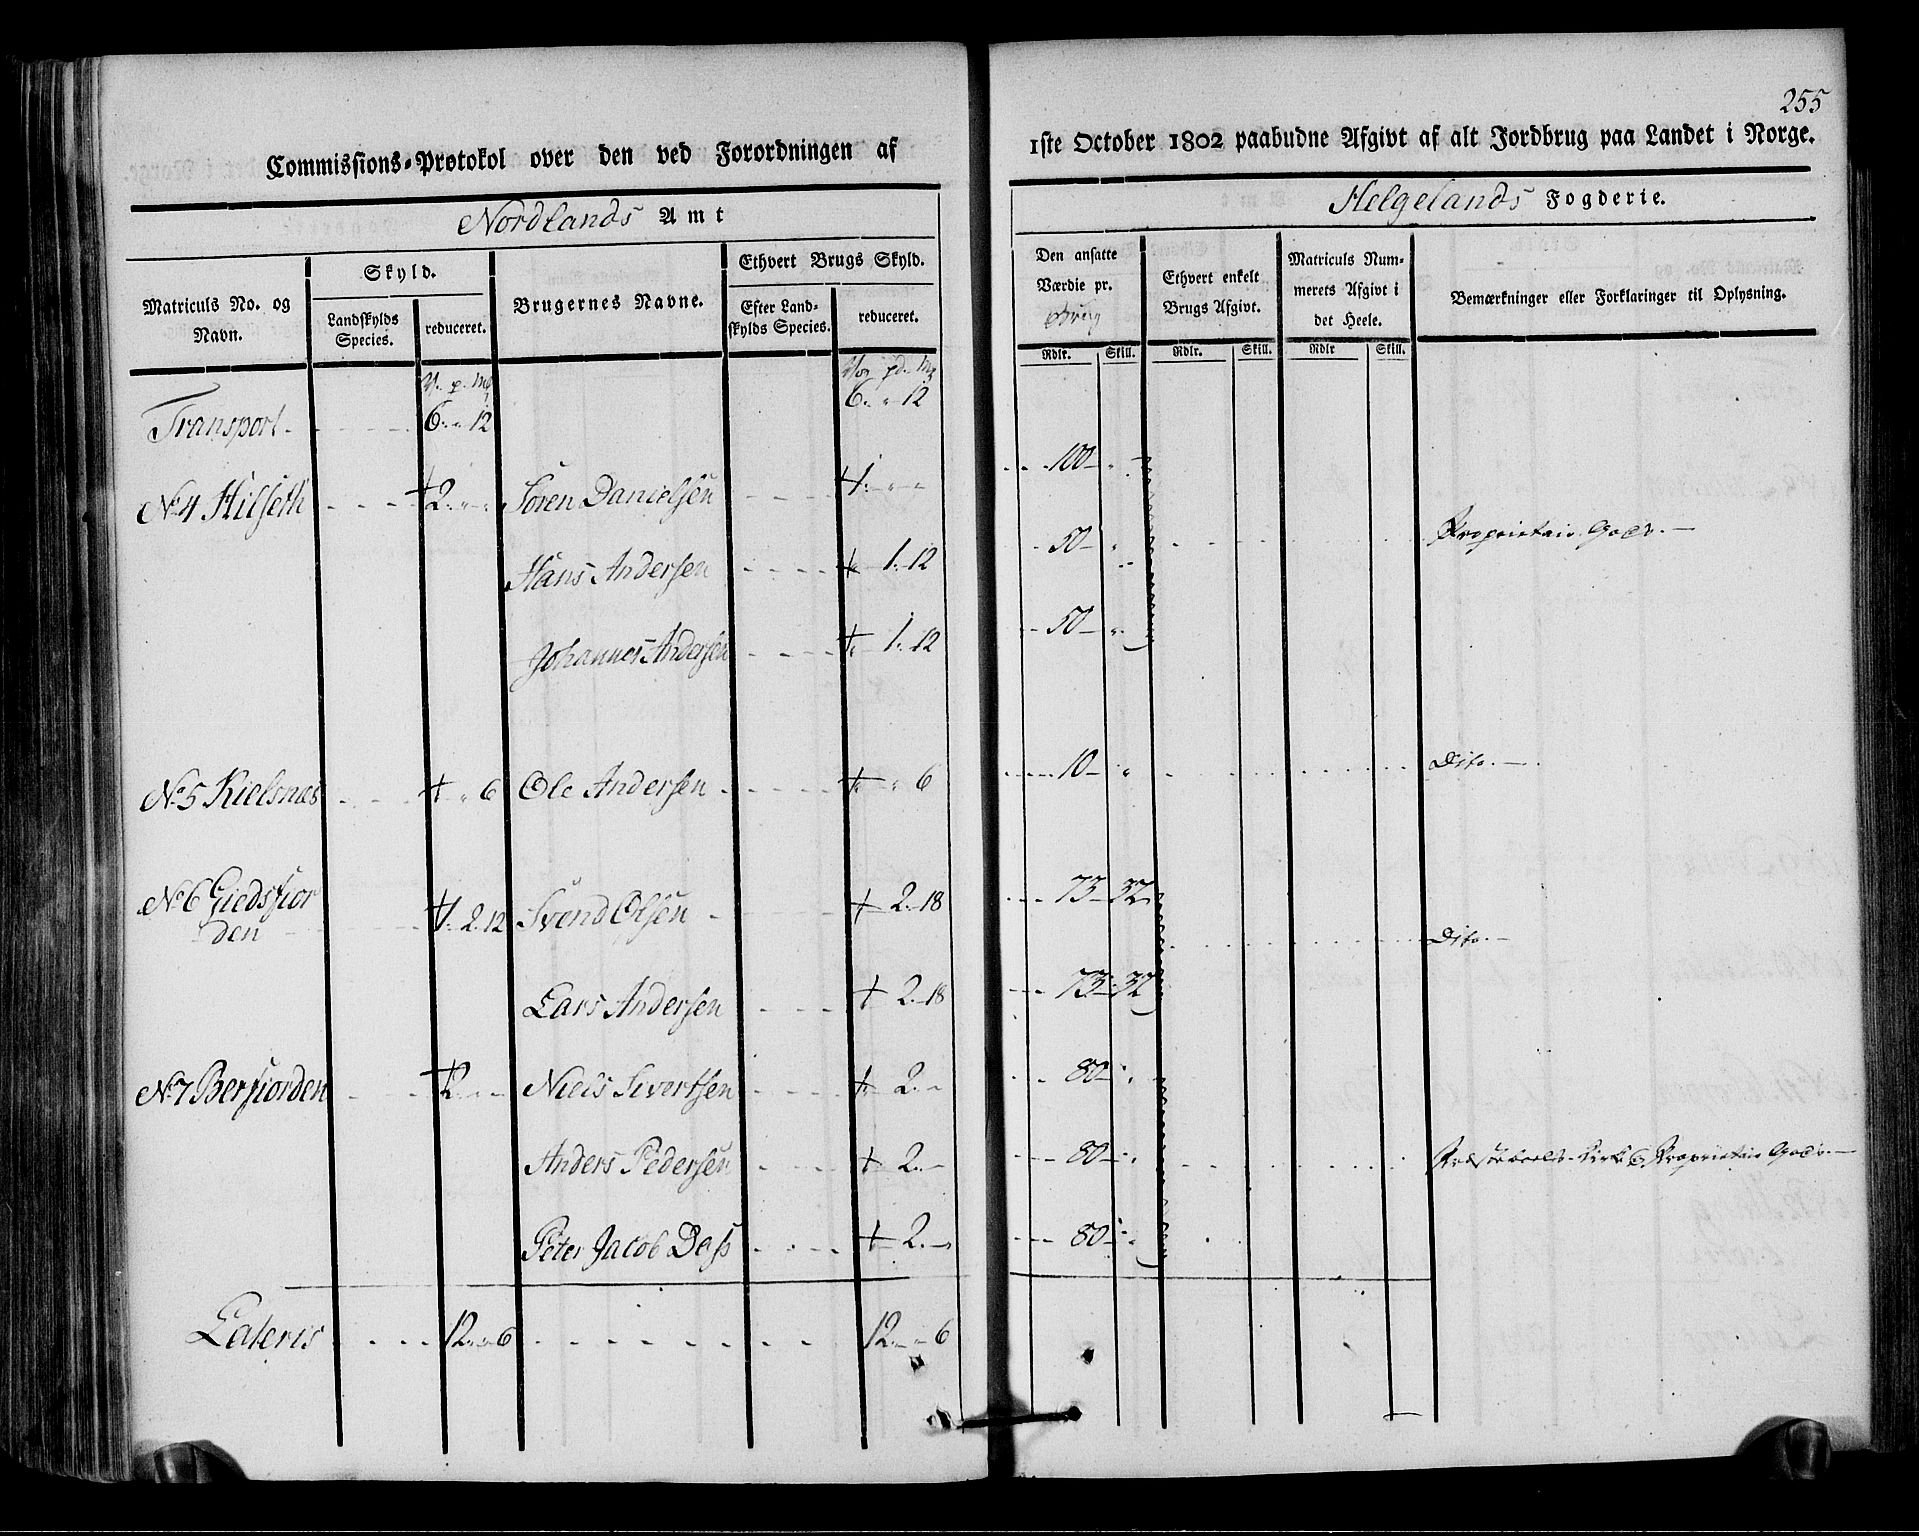 255
Commissions-Protokol over den ved Forordningen af
1ste October 1802 paabudne Afgivt af alt Jordbrug paa Landet i Norge.
Nordlands Amt
Helgelands Fogderie.
Matriculs No. og Navn.
Skyld.
Landskylds Species.
reduceret.
Brugernes Navne.
Ethvert Brugs Skyld.
Efter Landskylds Species.
reduceret.
Den ansatte Værdie pr. Brug
Ethvert enkelt Brugs Afgivt.
Matriculs Nummerets Afgivt i det Heele.
Bemærkninger eller Forklaringer til Oplysning.
Rdlr. Skill. Rdlr. Skill. Rdlr Skill.
V. p. Mk Vog pd. Mk
Transport. 6. " 12 6. " 12
No 4 Hilseth 2. " " Søren Danielsen 1. " " 100 "
Hans Andersen " 1. 12 50 " Proprietair Gods.
Johannes Andersen " 1. 12 50 "
No 5 Kielsnæs " " 6 Ole Andersen " " 6 10 " Dito.
No 6 Giedsfior
den 1. 2. 12 Svend Olsen 2. 18 73 32 Dito.
Lars Andersen 2. 18 73 32
No 7 Berfiorden 2. " " Niels Sivertsen " 2. " 80 "
Anders Pedersen 2. " 80 " Præsteboels- Kirke & Proprietair Gods.
Peter Jacob Dass 2. " 80 "
Lateris 12. " 6 12. " 6